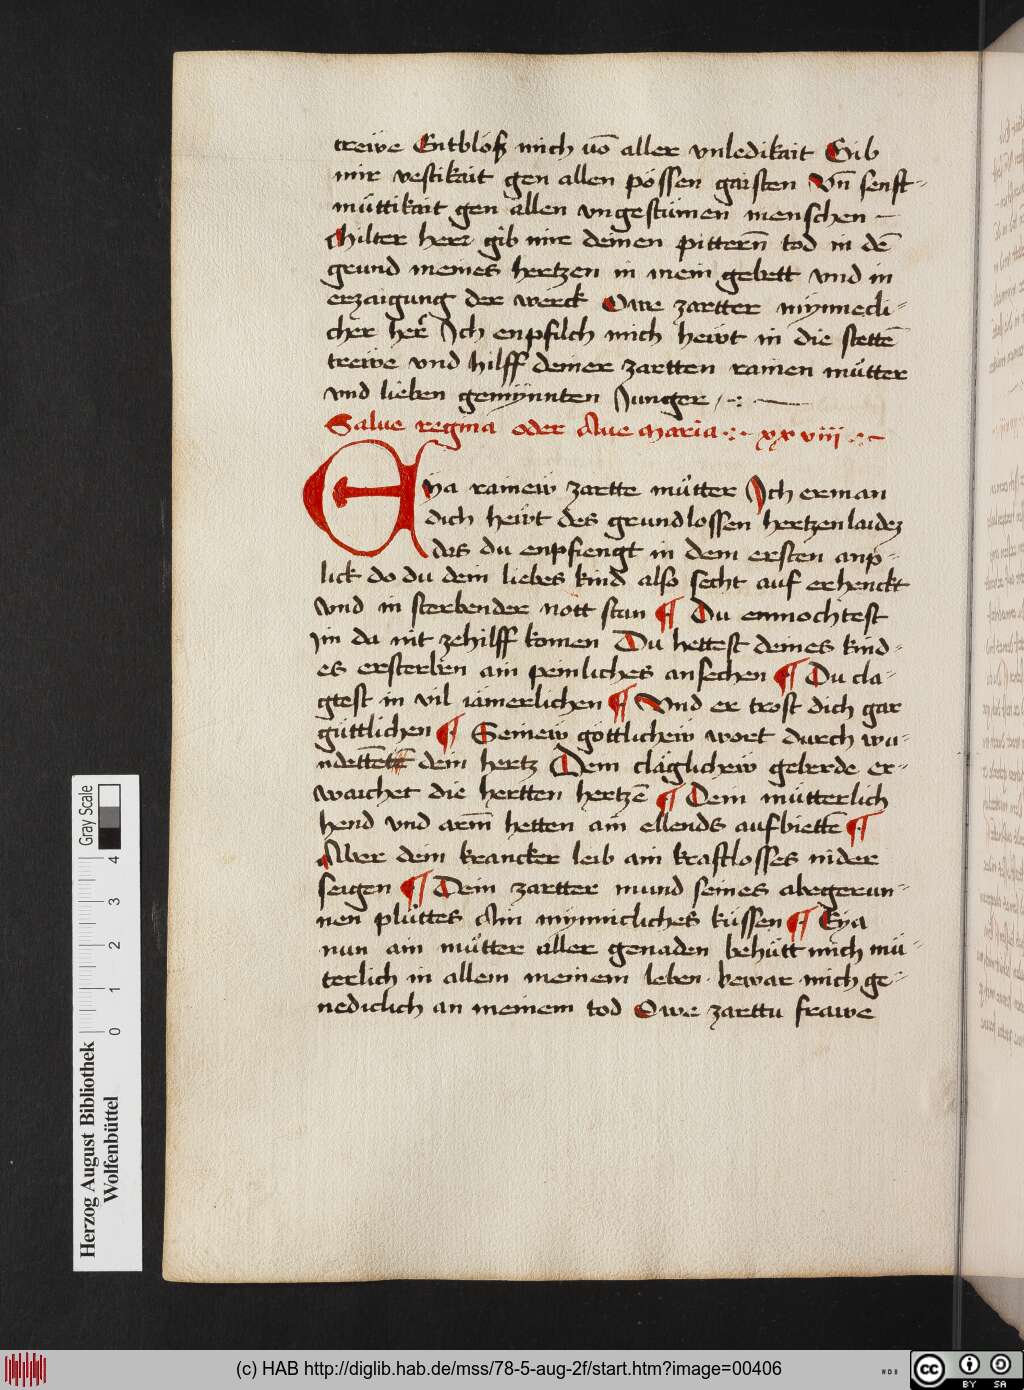 trewe Entblöß mich vō aller vnledikait Gib
mir vestikait gen allen pössen gaisten Vn̄ senft-
müttikait gen allen vngestümen menschen —
Milter herr gib mir deinen pittern̄ tod in dē
grund meines hertzen in mein gebett vnd in
erzaigung der werck Owe zartter mynnecli-
cher her Ich enpfilch mich hewt in die stettē
trewe vnd hilff deiner zartten rainen mütter
vnd lieben gemynnten Junger
Salue regina oder Aue maria xxviii
Eya rainew zartte mütter Ich erman
dich hewt des grundlossen hertzenlaidez
das du enpfiengt in dem ersten anp-
lick do du dein liebes kind also secht auf erhenckt
vnd in sterbender nött stan ¶ Du enmochtest
im da nit zehilff komen Du hettest deines kind-
es ersterben ain peinliches ansechen ¶ Du cla-
gtest in vil iämerlichen ¶ Vnd er trost dich gar
güttlichen ¶ Seinew göttlichew wort durch wu-
dem hertz Dein cläglichew geberde er-
waichet die hertten hertzē ¶ Dein mütterlich
hend vnd arm̄ hetten ain ellends aufbiettē ¶
Aber dein krancker leib ain kraftlosses nider
seigen ¶ Dein zartter mund seines abegerun-
nen plüttes Ain mynnicliches küssen ¶ Eya
nun ain mütter aller genaden behütt mich mü-
terlich in allem meinem leben · bewar mich ge-
nediclich an meinem tod Owe zarttu frawe
Gray Scale
0 1 2 3 4
Herzog August Bibliothek
Wolfenbüttel
(c) HAB http://diglib.hab.de/mss/78-5-aug-2f/start.htm?image=00406
cc BY SA